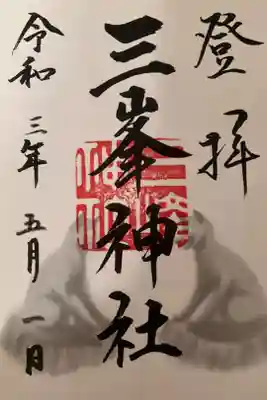 登拝
三峯神社
令和三年五月一日